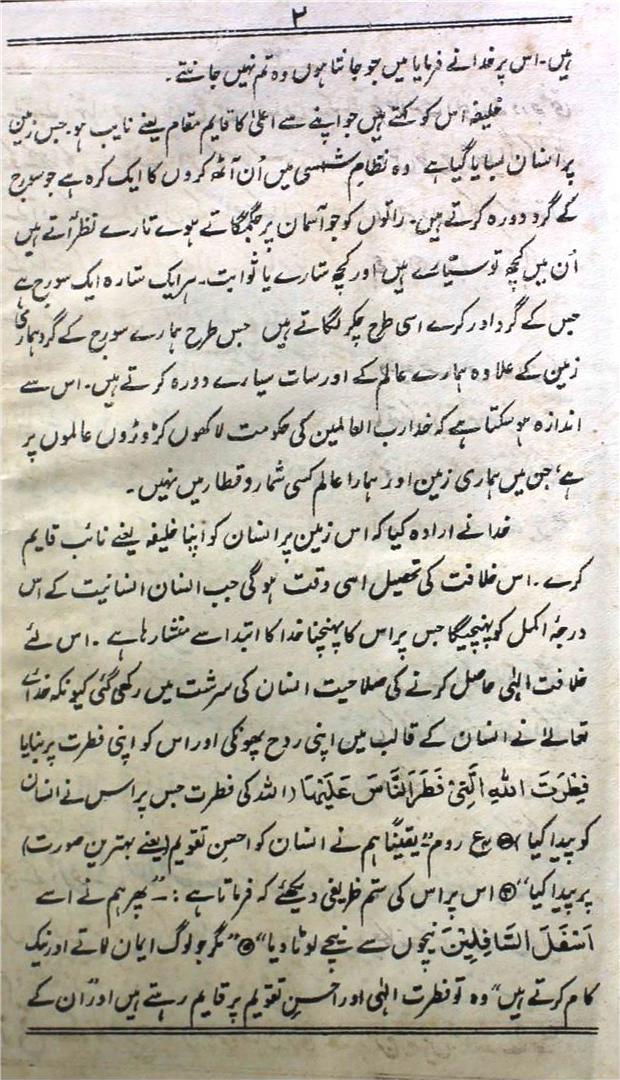 ۲
ہیں۔ اس پر خدا نے فرمایا میں جو جانتا ہوں وہ تم نہیں جانتے۔
خلیفہ اس کو کہتے ہیں جو اپنے سے اعلیٰ کا قایم مقام یعنے نایب ہو۔ جس زمین
پر انسان بسایا گیا ہے وہ نظامِ شمسی میں اُن آٹھ کروں کا ایک کرہ ہے جو سورج
کے گرد دورہ کرتے ہیں۔ راتوں کو جو آسمان پر جگمگاتے ہوے تارے نظر آتے ہیں
اُن میں کچھ تو سیارے ہیں اور کچھ ستارے یا ثوابت۔ ہر ایک ستارہ ایک سورج ہے
جس کے گرد اور کرے اسی طرح چکر لگاتے ہیں جس طرح ہمارے سورج کے گرد ہماری
زمین کے علاوہ ہمارے عالم کے اور سات سیارے دورہ کرتے ہیں۔ اس سے
اندازہ ہو سکتا ہے کہ خدا رب العالمین کی حکومت لاکھوں کڑوڑوں عالموں پر
ہے، جن میں ہماری زمین اور ہمارا عالم کسی شمار و قطار میں نہیں۔
خدا نے ارادہ کیا کہ اس زمین پر انسان کو اپنا خلیفہ یعنے نائب قایم
کرے۔ اس خلافت کی تحصیل اسی وقت ہو گی جب انسان انسانیت کے اس
درجۂ اکمل کو پہنچیگا جس پر اس کا پہنچنا خدا کا ابتدا سے منشا رہا ہے۔ اس لئے
خلافت الٰہی حاصل کرنے کی صلاحیت انسان کی سرشت میں رکھی گئی کیونکہ خدائے
تعالےٰ نے انسان کے قالب میں اپنی روح پھونکی اور اس کو اپنی فطرت پر بنایا
فِطْرَتَ اللهِ الَّتِیْ فَطَرَ النَّاسَ عَلَیْهَا (اللہ کی فطرت جس پر اس نے انسان
کو پیدا کیا) ع روم "یقیناً ہم نے انسان کو احسن تقویم (یعنے بہترین صورت)
پر پیدا کیا" اس پر اس کی ستم ظریفی دیکھئے کہ فرماتا ہے :۔ "پھر ہم نے اسے
اَسْفَلَ السَّافِلِیْنَ نیچوں سے نیچے لوٹا دیا" "مگر جو لوگ ایمان لاتے اور نیک
کام کرتے ہیں" وہ تو فطرت الٰہی اور احسن تقویم پر قایم رہتے ہیں اور "ان کے